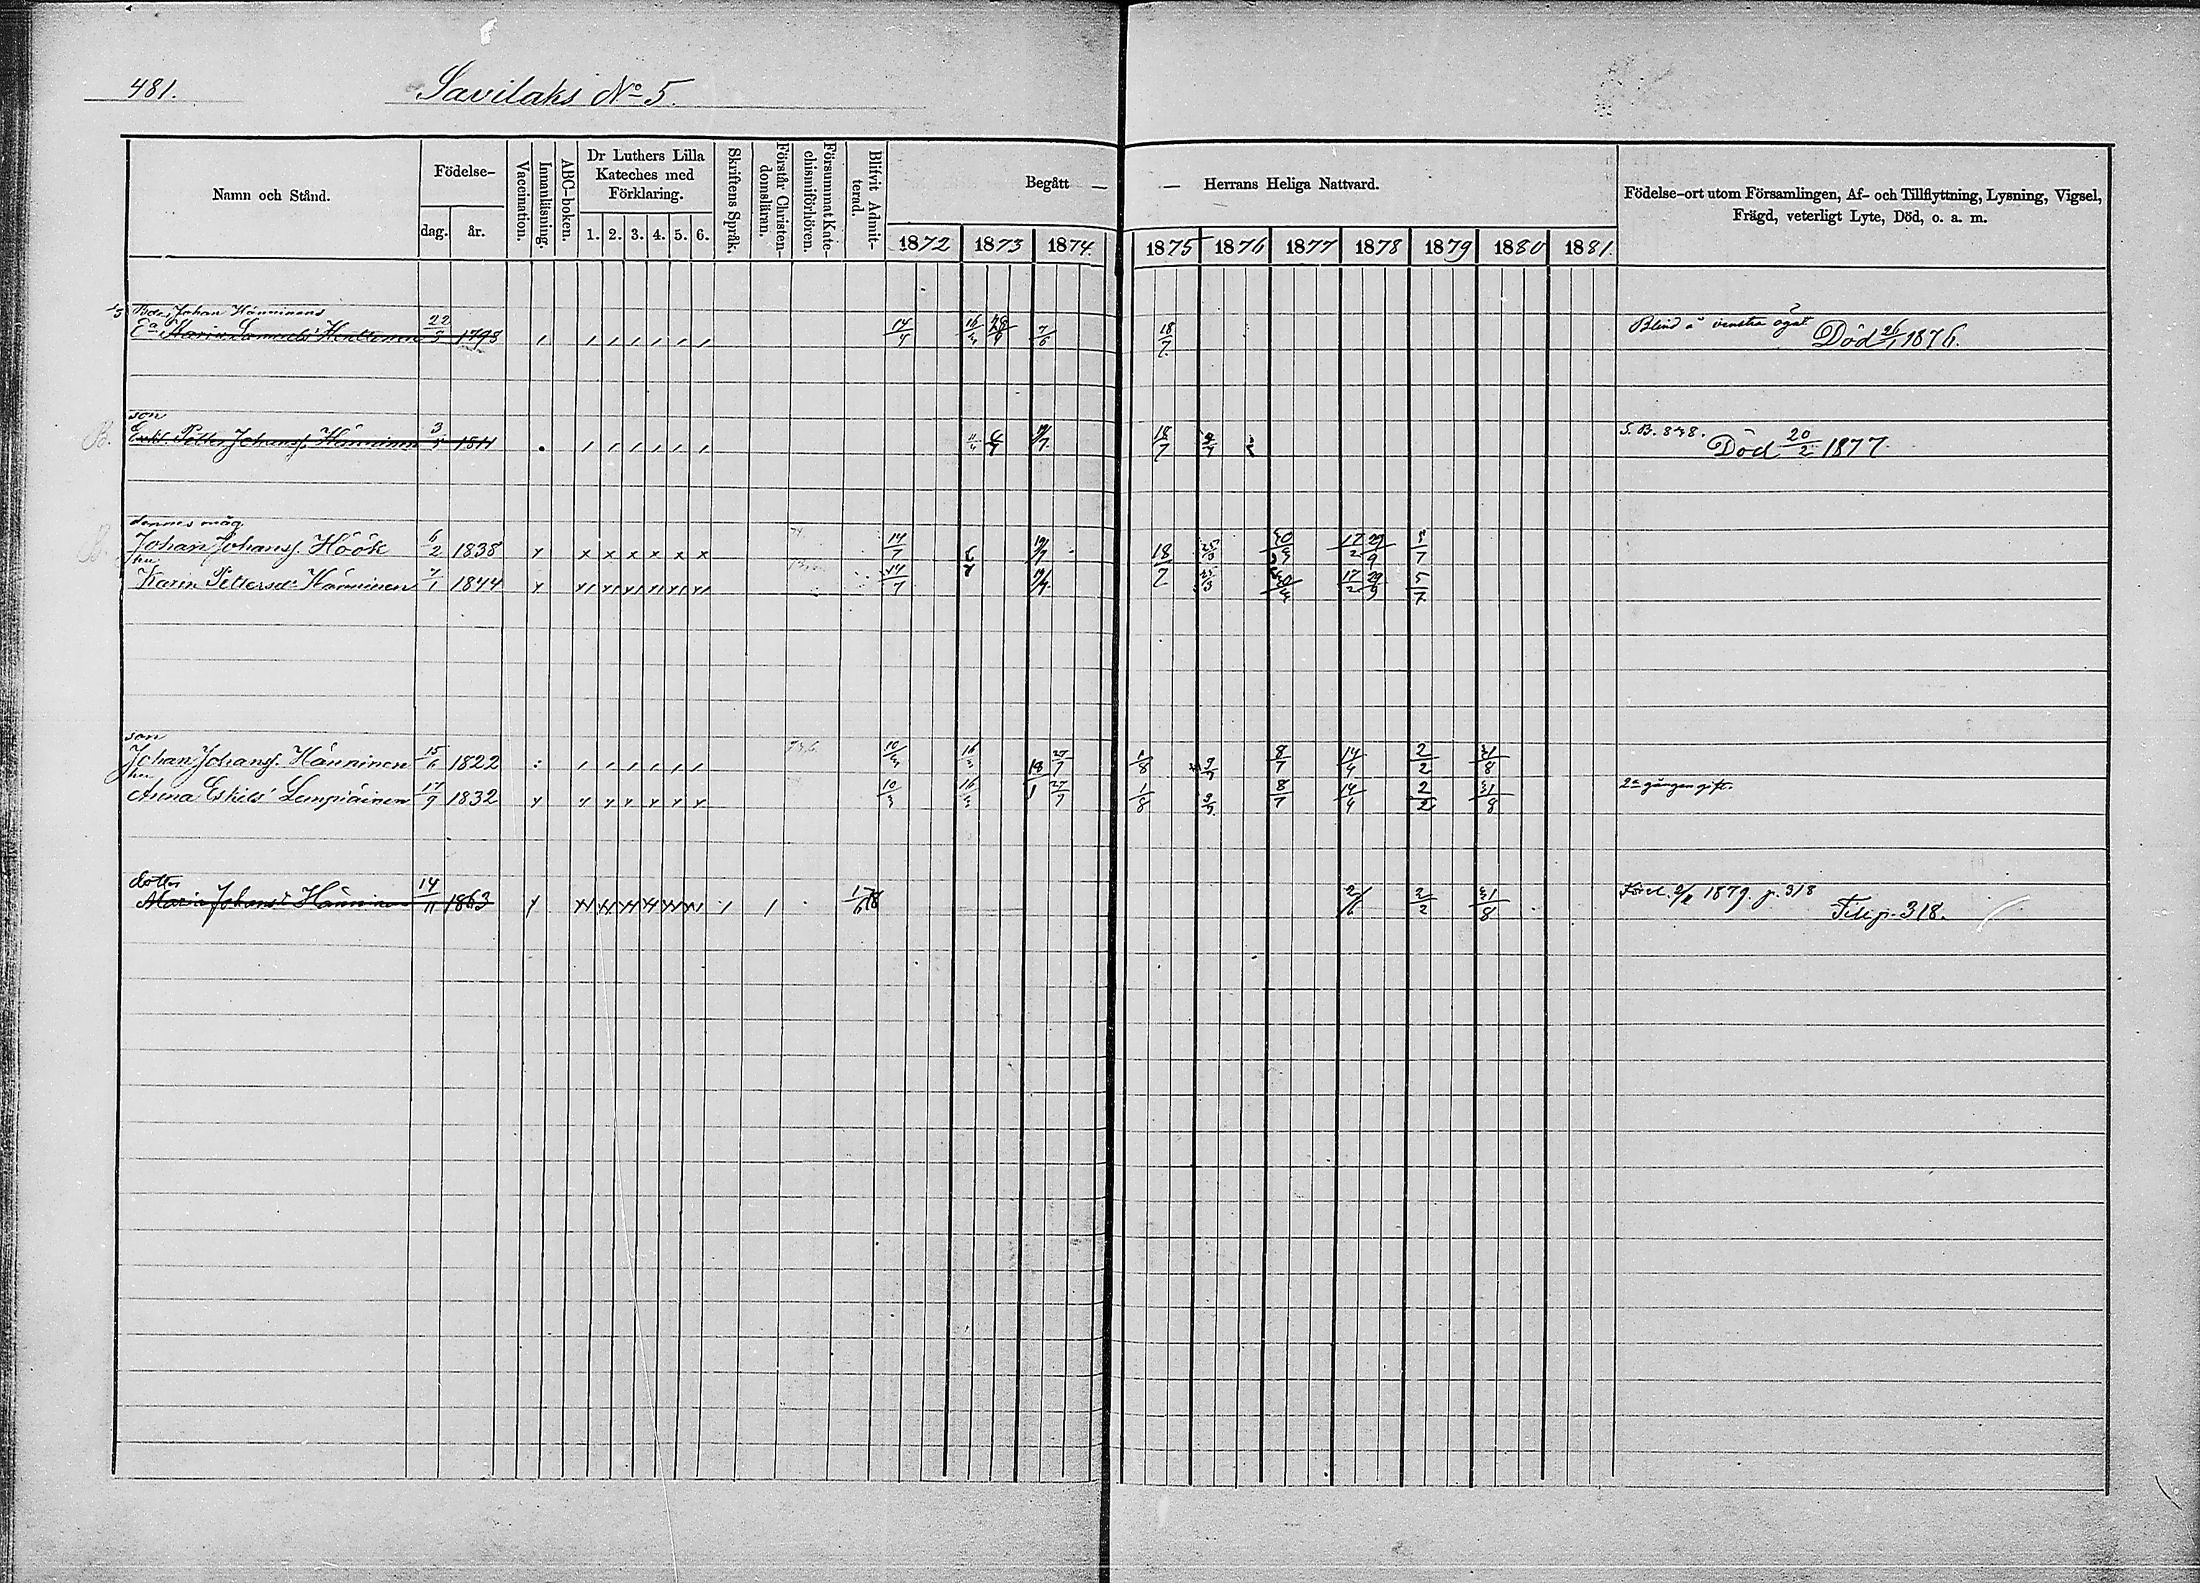 481.
Savilaks No 5.
Namn och Stånd.
Födelse-
dag.
år.
Vaccination.
Innanläsning.
ABC-boken.
Dr Luthers Lilla
Kateches med
Förklaring.
1. 2. 3. 4. 5. 6.
Skriftens Språk.
Förstår Christen-
domsläran.
Försummat Kate-
chismiförhören.
Blifvit Admit-
terad.
Begått —
— Herrans Heliga Nattvard.
1872 1873 1874. 1875 1876 1877 1878 1879 1880 1881.
Födelse-ort utom Församlingen, Af- och Tillflyttning, Lysning, Vigsel,
Frägd, veterligt Lyte, Död, o. a. m.
1/3 Johan Hänninens
Ea Maria Samuelsd 22/5 1793 14/4 7/6 18/7 Blind å venstra ögat Död 26/1 1876.
son
B. Petter Johanss. Hänninen 3/5 1811 19/7 18/7 S. B. 848. Död 20/2 1877.
dennes måg
B. Johan Johanss. Höök 6/2 1838 14/7 19/7 18/7 25/3 30/9 17/2 29/9 5/7
hu
Karin Pettersd. Hänninen 7/1 1844 14/7 19/7 25/3 30/9 17/2 29/9 5/7
son
Johan Johanss. Hänninen 15/6 1822 10/3 16/3 18/1 27/7 1/8 9/7 8/7 14/4 2/2 31/8
hu
Anna Eskilsd Lempiäinen 17/9 1832 10/3 16/3 27/7 1/8 9/7 8/7 14/4 2/2 31/8 2a gången gift.
dotter
Maria Johansd Hänninen 14/11 1863 2/6 2/2 31/8 1879. p. 318
Till p. 318.